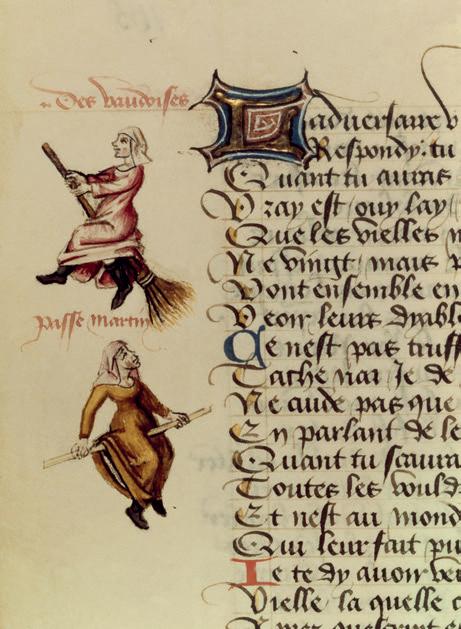 Des vaudoises
passe martin
Ladversaire v
Respondy: tu
Quant tu auras
Vray est / ouy lay /
Que les vielles n
Ne vingt / mais p
Vont ensemble en
Veoir leurs dyabl
Ce nest pas truff
Tache nai Je de
Ne cuide pas que
En parlant de le
Quant tu scaura
Toutes les vould
Et nest au mond
Qui leur fait pu
Je te dy auoir ve
Vielle la quelle c